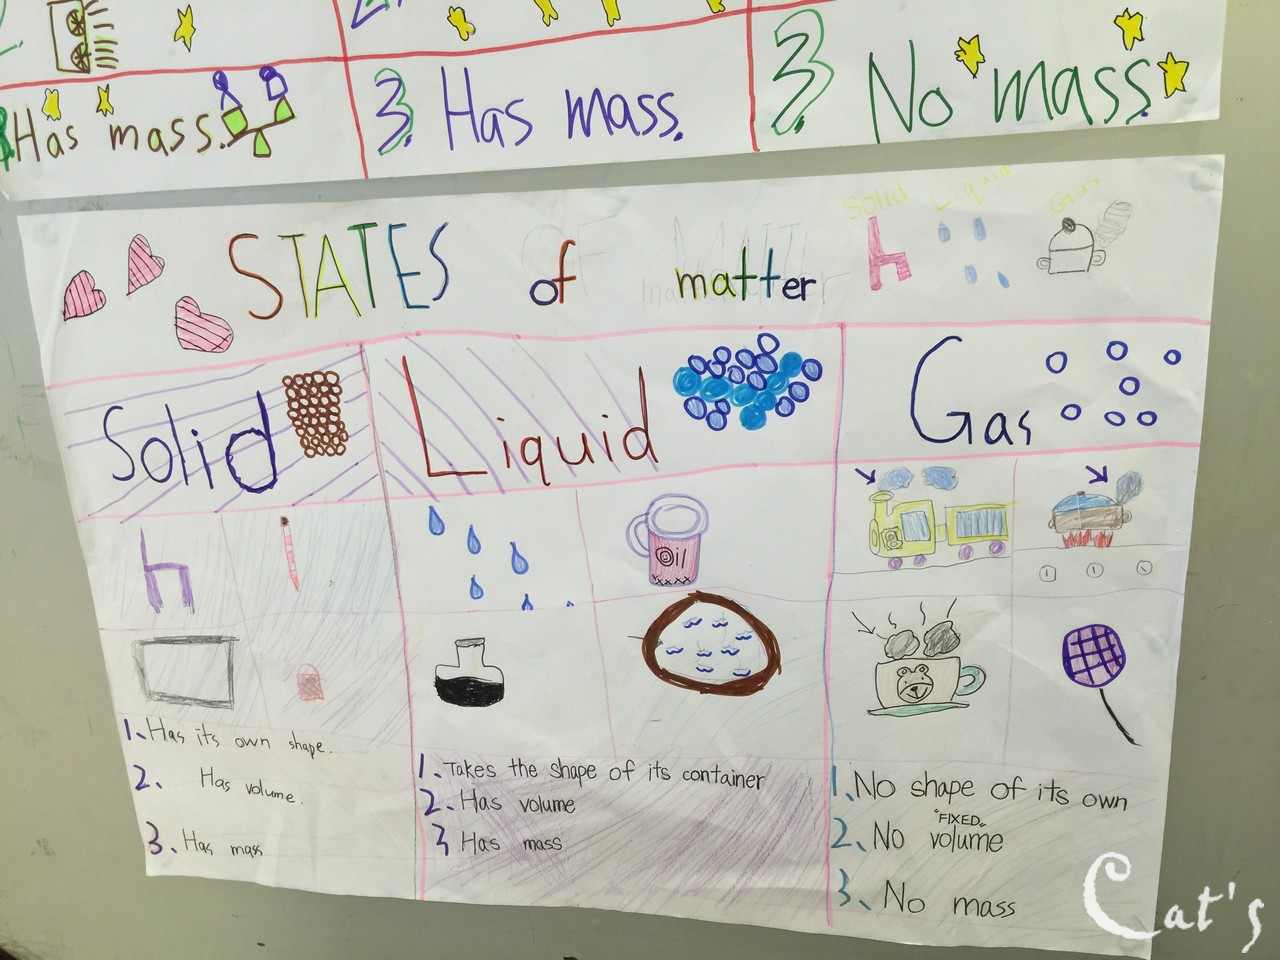 Has mass.
3. Has mass.
3. No mass.
STATES of matter
Solid
Liquid
Gas
Solid
Liquid
Gas
Oil
1、Has its own shape.
2. Has volume.
3、Has mass
1、Takes the shape of its container
2、Has volume
3 Has mass
1、No shape of its own
"FIXED„
2、No volume
3、No mass
Cat's